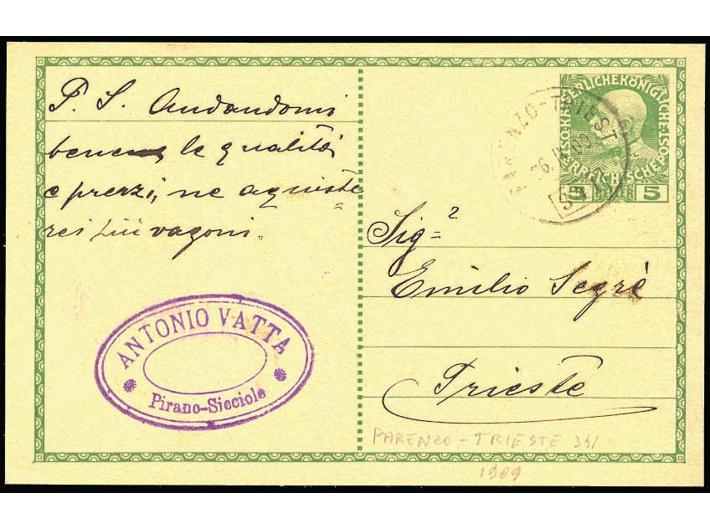 P. S. Andandomi
bene le qualità
e prezzi, ne aquiste=
rei più vagoni.
ANTONIO VATTA
Pirano-Sicciole
KAISERLICHE KÖNIGLICHE
ÖSTERREICHISCHE POST
5 HELLER 5
PARENZO-TRIESTE
6. 09
341
Sig=²
Emilio Segrè
Trieste
PARENZO - TRIESTE 341
1909